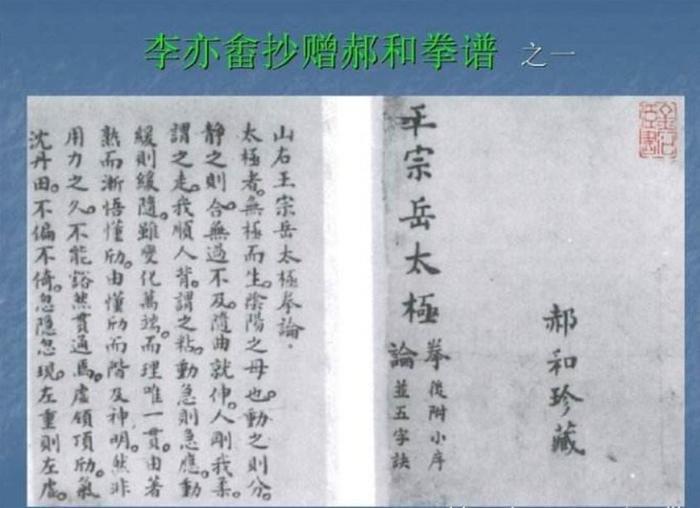 李亦畬抄赠郝和拳谱 之一
郝和珍藏
王宗岳太極
拳後附小序
論並五字訣
山右王宗岳太極拳論.
太極者。無極而生。陰陽之母也。動之則分。
静之則合。無過不及。隨曲就伸。人剛我柔。
謂之走。我順人背。謂之粘。動急則急應。動
緩則緩隨。雖變化萬端。而理唯一貫。由著
熟而漸悟懂劤。由懂劤而階及神明。然非
用力之久。不能豁然貫通焉。虛領頂劤。氣
沈丹田。不偏不倚。忽隱忽現。左重則左虛。